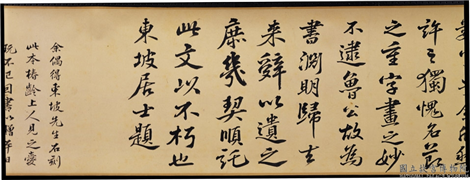 許之獨愧名節
之重字畫之妙
不逮魯公故為
書淵明歸去
来辭以遺之
庶幾契順託
此文以不朽也
東坡居士題
余偶得東坡先生石刻
此本椿齡上人見之愛
玩不已因書以贈
國立故宮博物院